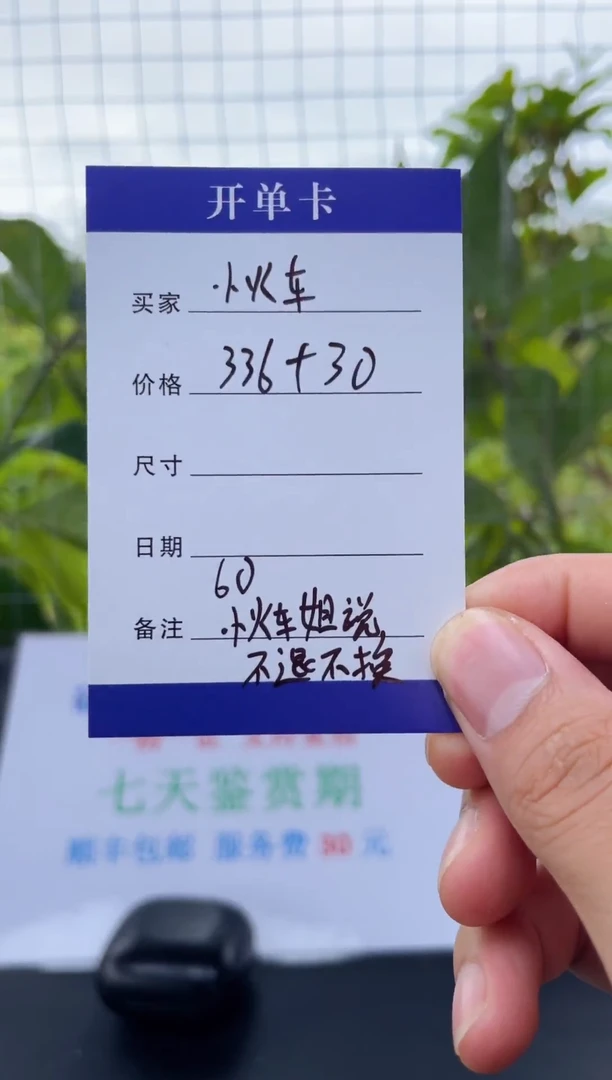 开单卡
买家 小火车
价格 336+30
尺寸
日期
60
备注 小火车姐说,
不退不换
七天鉴赏期
顺丰包邮 服务费30元